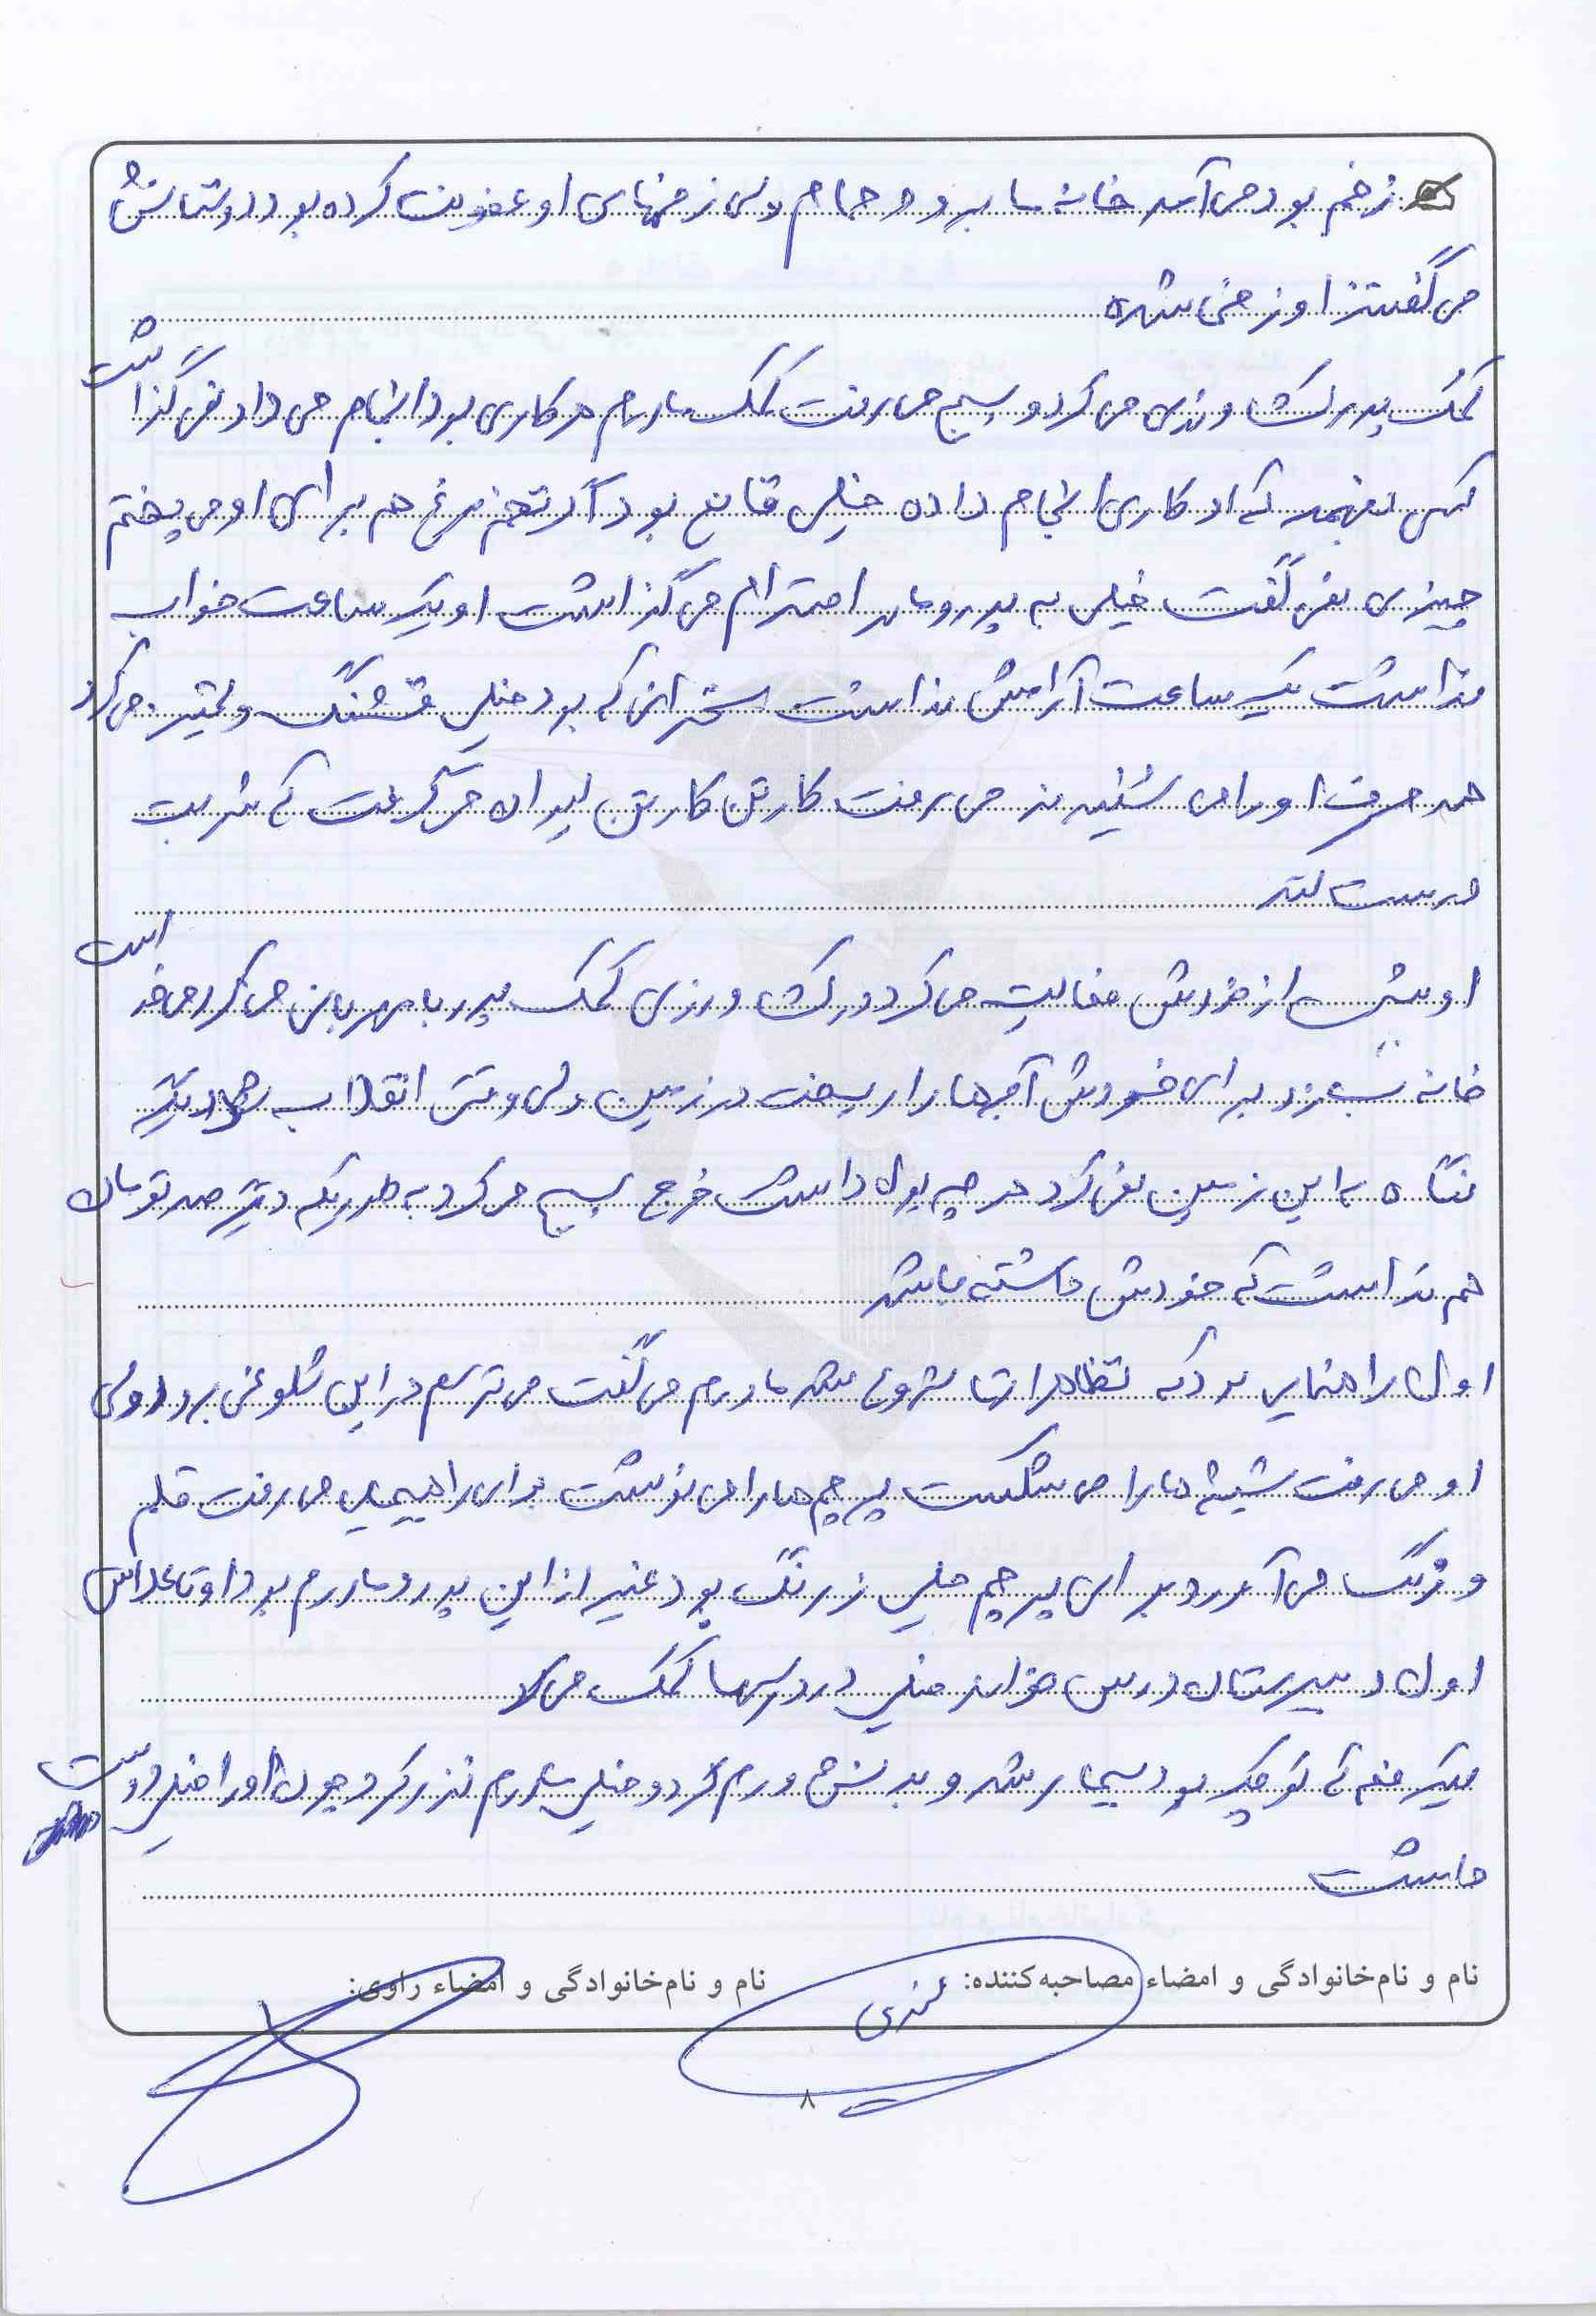 زخم بود می آمد خانه ما برود حمام ولی زخمهای او عفونت کرده بود دوستانش
می گفتند او زخمی شده
کمک پدر کشاورزی می کرد و بسیج می رفت کمک مادرم هر کاری بود انجام می داد نمی گذاشت
کسی بفهمد که او کاری انجام داده خیلی قانع بود اگر تخم مرغ هم برای او می پختم
چیزی نمی گفت خیلی به پدر و مادر احترام می گذاشت او یک ساعت خواب
نداشت یک ساعت آرامش نداشت سخنرانی که بود خیلی قشنگ و تمیز می کرد
همه حرف او را می شنیدند می رفت کارتن کارتن لیوان می گرفت که شربت
درست کند
او بیشتر از خودش فعالیت می کرد در کشاورزی کمک پدر با مهربانی می کرد می خواست
خانه بسازد برای خودش آجرها را ریخت در زمین ولی وقتی انقلاب شد دیگر
نگاه به این زمین نمی کرد هر چه پول داشت خرج بسیج می کرد به طوریکه دیگر صد تومان
هم نداشت که خودش داشته باشد
اول راهنمایی بود که تظاهرات شروع شد مادرم می گفت می ترسم در این شلوغی برود ولی
او می رفت شیشه ها را می شکست پرچم ها را می نوشت برای راهپیمایی می رفت قلم
و رنگ می آورد برای پرچم خیلی زرنگ بود غیر از این پدر و مادرم بود او تا کلاس
اول دبیرستان درس خواند خیلی در درسها کمک می کرد
یک دفعه که کوچک بود بیمار شد و بدنش ورم کرد و خیلی مادرم نذر کرد چون او را خیلی دوست
داشت
نام و نام‌خانوادگی و امضاء مصاحبه‌کننده:
نام و نام‌خانوادگی و امضاء راوی:
۸